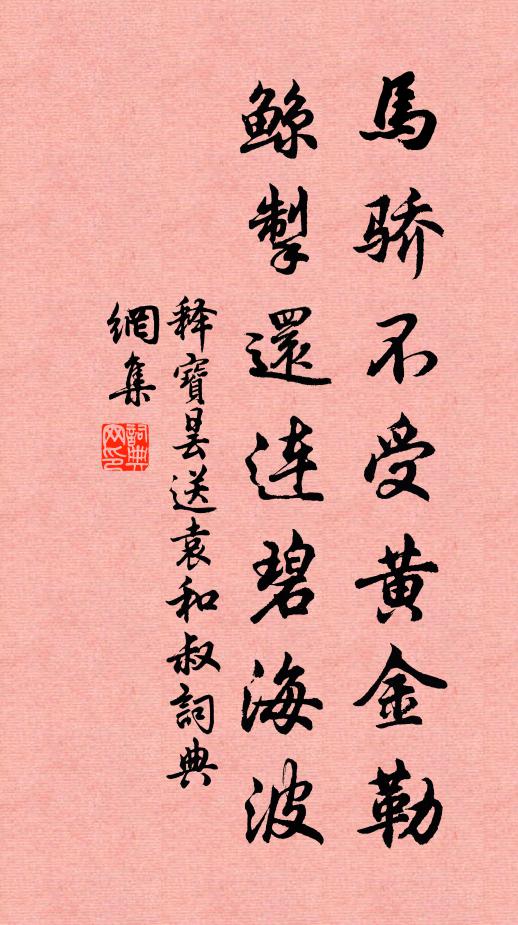 馬骄不受黄金勒
鲸掣還连碧海波
释寶曇送袁和叔詞典
網集
詞典
网印